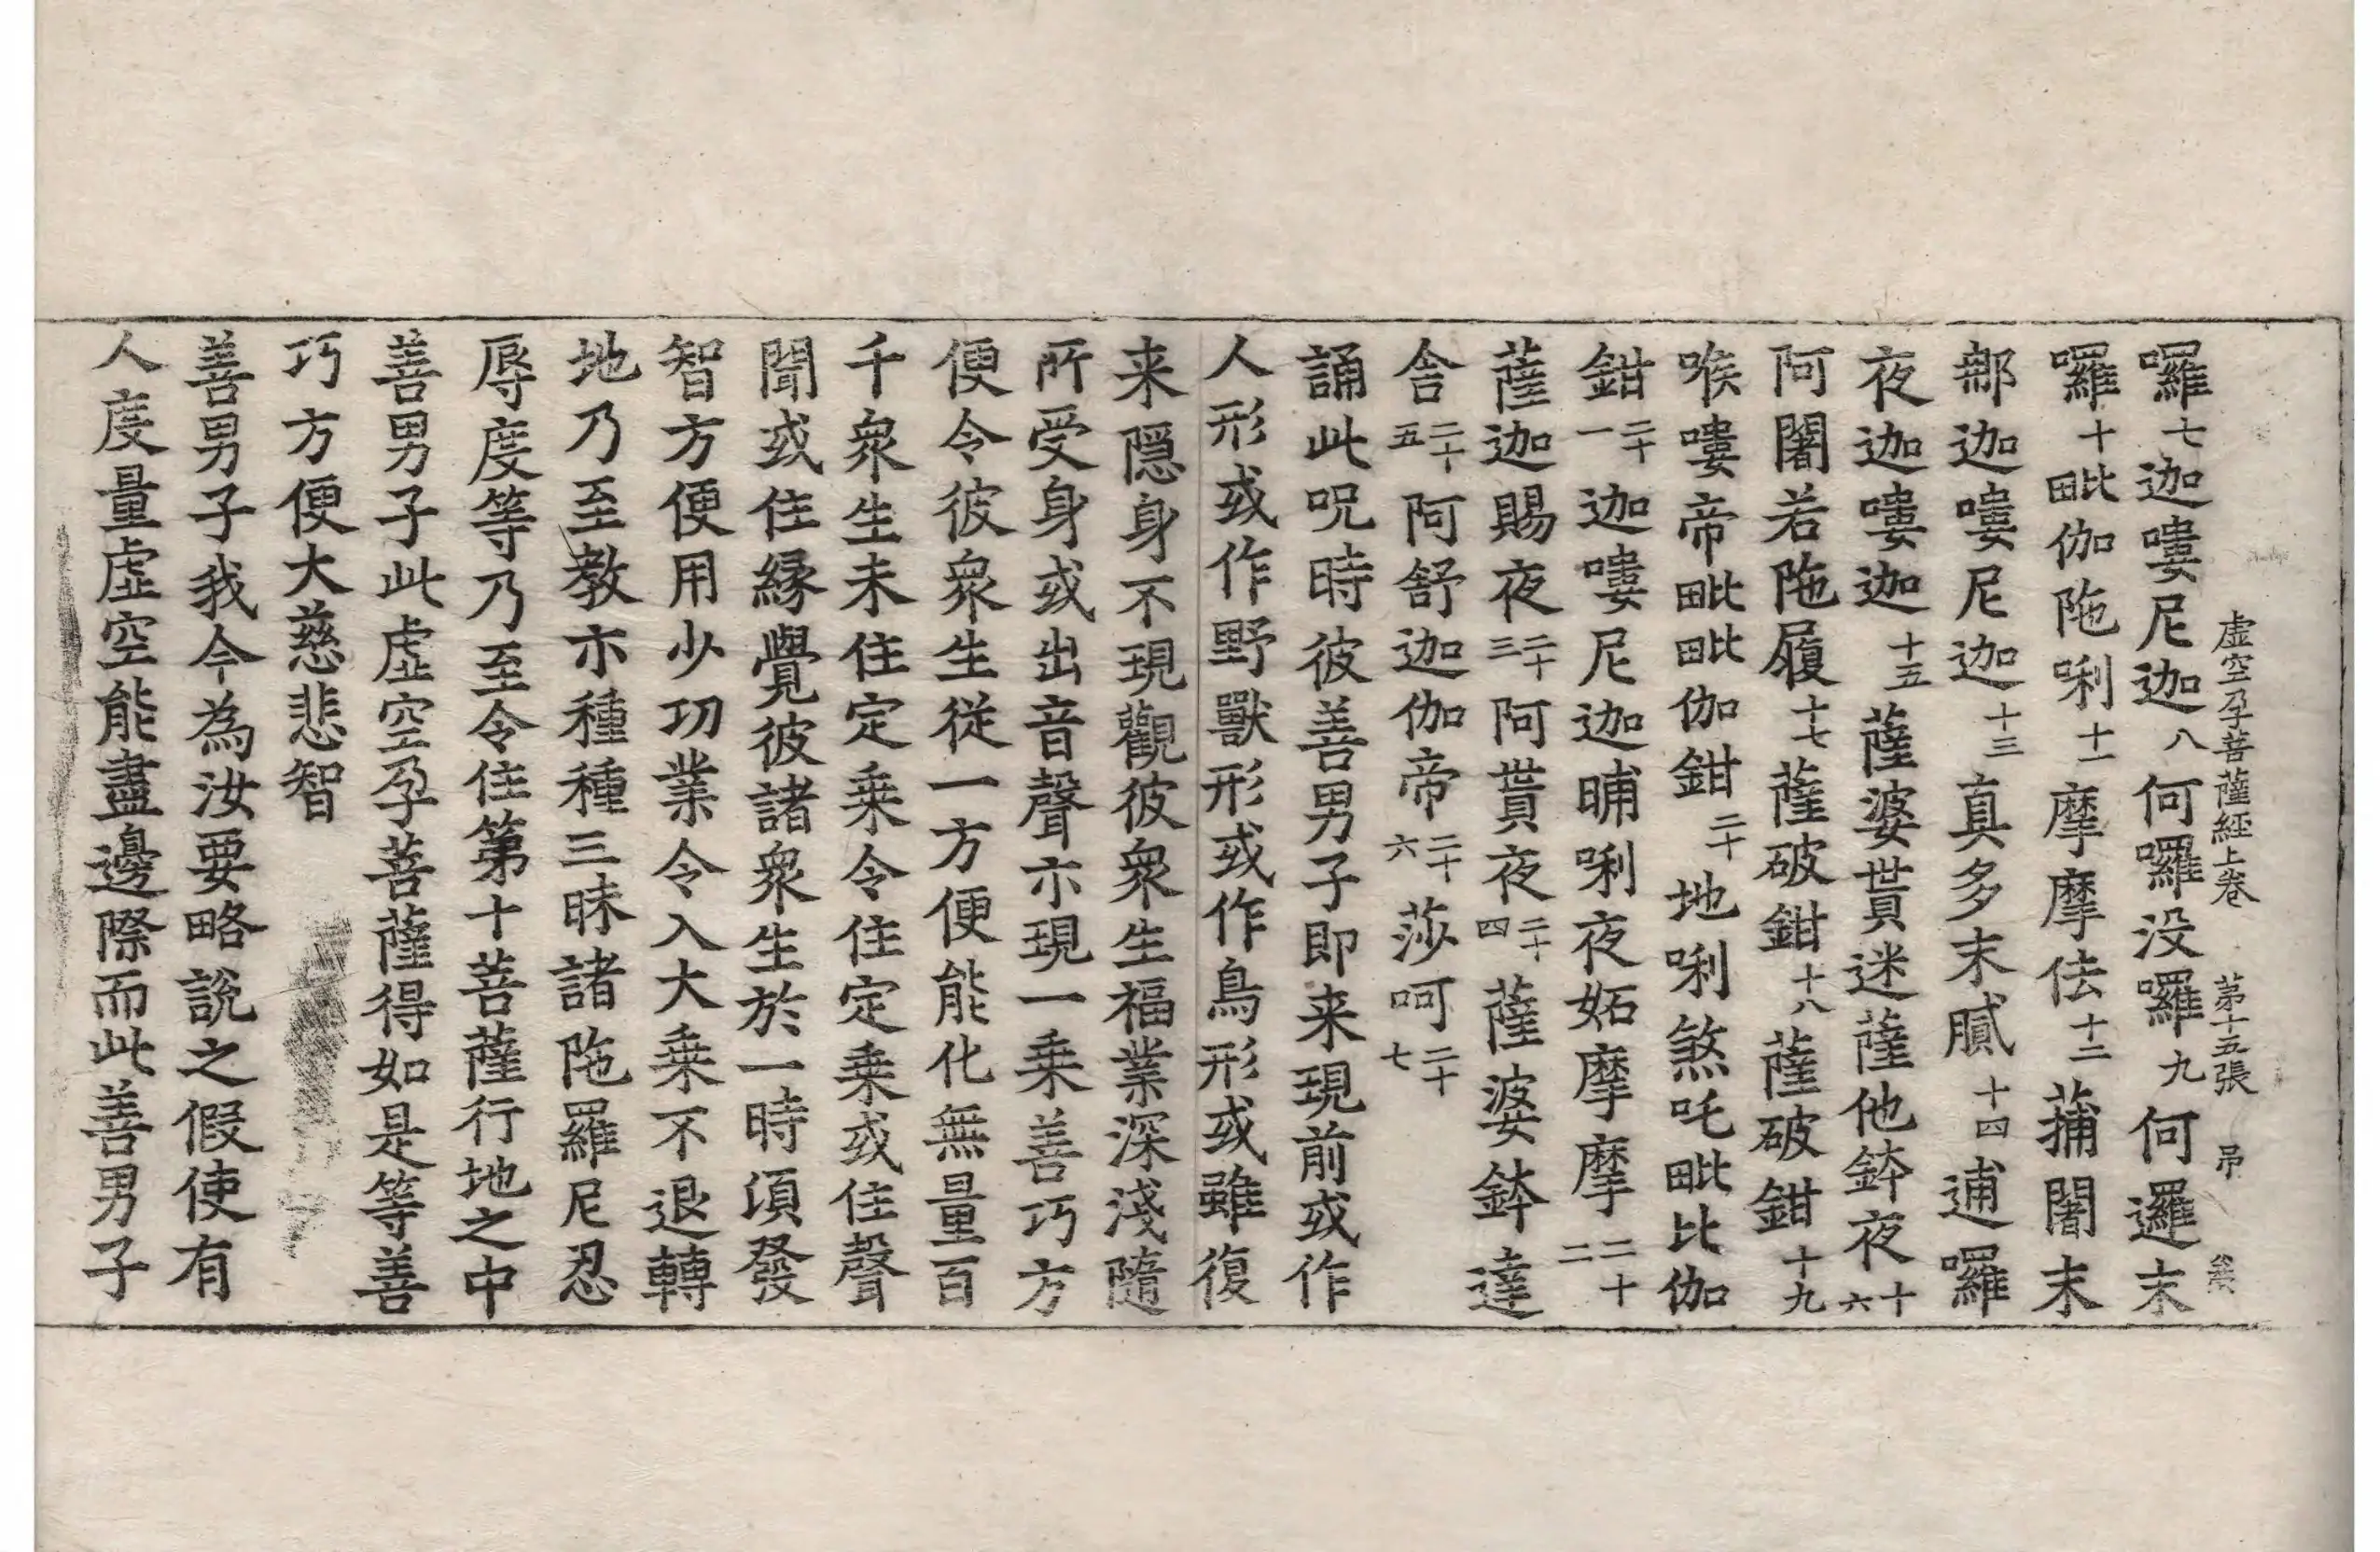 虚空孕菩薩經上卷 第十五張 吊
囉七迦嘍尼迦八何囉没囉九何邏末
囉十毗伽陁唎十一摩摩佉十二蒱闍末
郍迦嘍尼迦十三真多末膩十四逋囉
夜迦嘍迦十五薩婆貰迷薩他鉢夜十六
阿闍若陁履十七薩破鉗十八薩破鉗十九
喉嘍帝毗毗伽鉗二十地唎煞吒毗比伽
鉗二十一迦嘍尼迦晡唎夜妬摩摩二十二
薩迦賜夜二十三阿貰夜二十四薩婆鉢達
舍二十五阿舒迦伽帝二十六莎呵二十七
誦此呪時彼善男子即来現前或作
人形或作野獸形或作鳥形或雖復
来隱身不現觀彼衆生福業深淺隨
所受身或出音聲亦現一乗善巧方
便令彼衆生從一方便能化無量百
千衆生未住定乗令住定乗或住聲
聞或住緣覺彼諸衆生於一時湏發
智方便用少功業令入大乗不退轉
地乃至教亦種種三昧諸陁羅尼忍
辱度等乃至令住第十菩薩行地之中
善男子此虚空孕菩薩得如是等善
巧方便大慈悲智
善男子我今為汝要略說之假使有
人度量虚空能盡邊際而此善男子